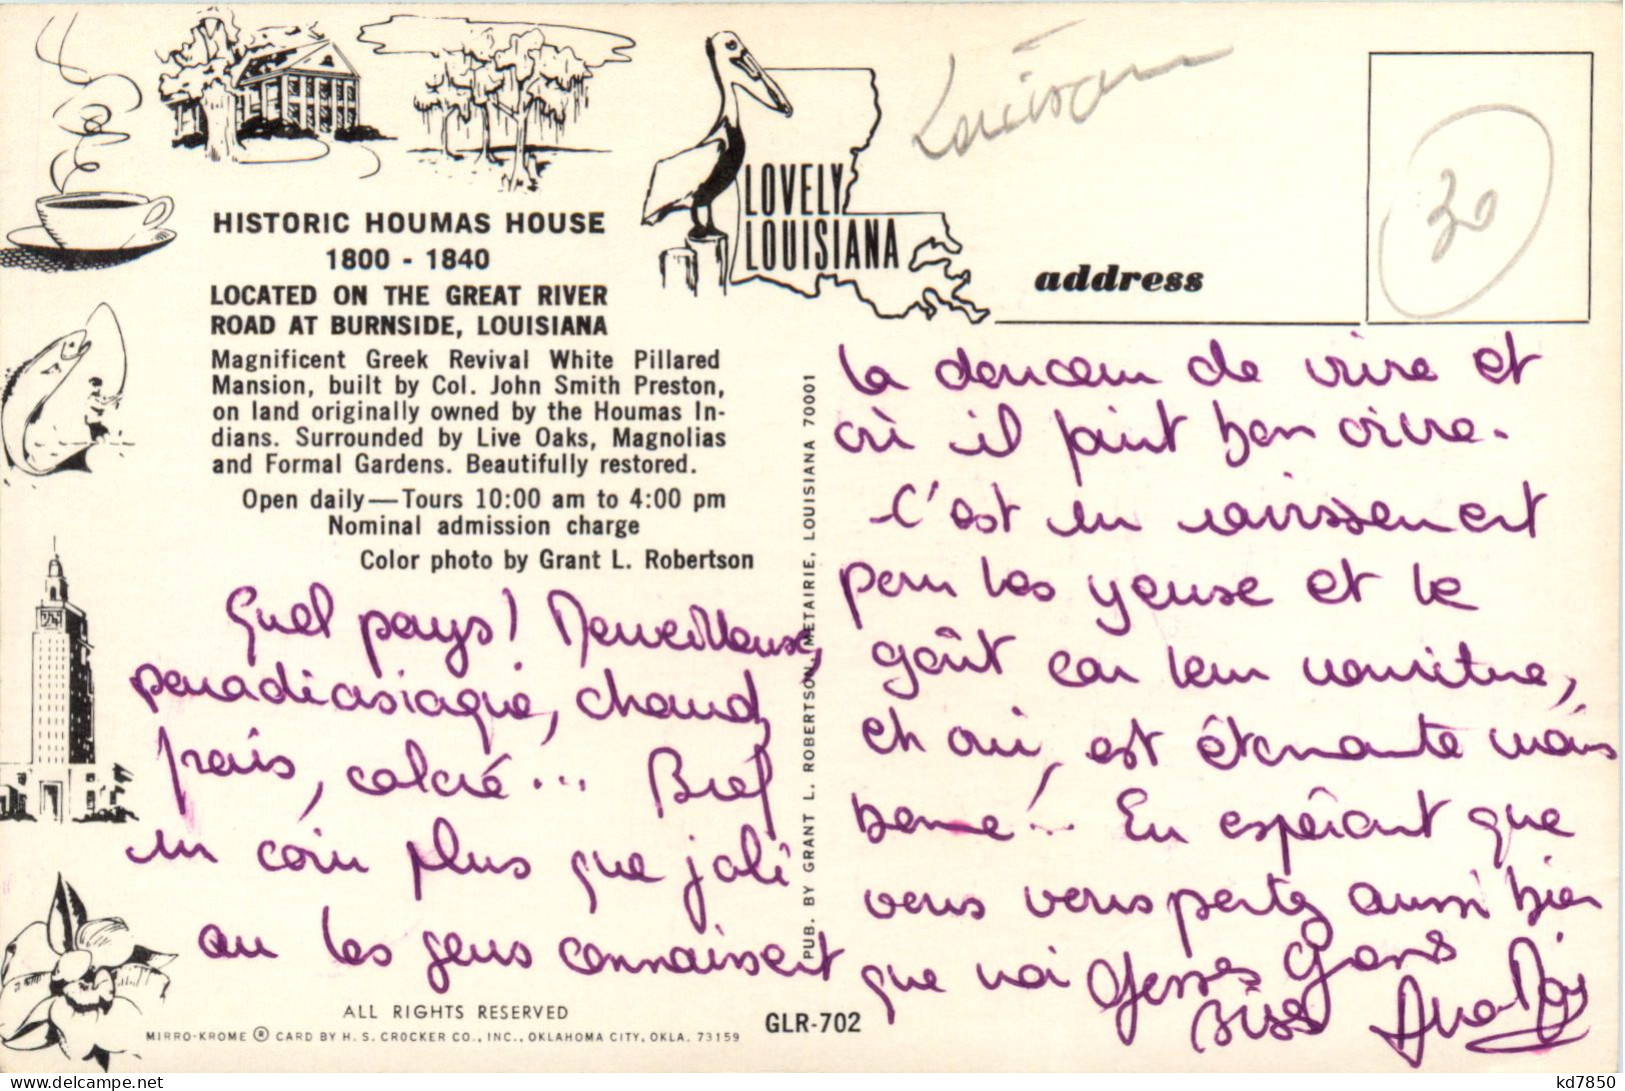 HISTORIC HOUMAS HOUSE
1800 - 1840
LOCATED ON THE GREAT RIVER
ROAD AT BURNSIDE, LOUISIANA
Magnificent Greek Revival White Pillared
Mansion, built by Col. John Smith Preston,
on land originally owned by the Houmas In-
dians. Surrounded by Live Oaks, Magnolias
and Formal Gardens. Beautifully restored.
Open daily—Tours 10:00 am to 4:00 pm
Nominal admission charge
Color photo by Grant L. Robertson
Quel pays! Merveilleuse,
paradiasiaque, chaud,
frais, coloré... Bref
un coin plus que joli
où les gens connaissent
ALL RIGHTS RESERVED
MIRRO-KROME ® CARD BY H. S. CROCKER CO., INC., OKLAHOMA CITY, OKLA. 73159
GLR-702
PUB. BY GRANT L. ROBERTSON, METAIRIE, LOUISIANA 70001
LOVELY
LOUISIANA
30
address
la douceur de vivre et
où il faint bon vivre.
C'est un ravissement
pour les yeuse et le
goût car leur nourriture,
eh oui, est étonnante mais
bonne!... En espérant que
vous vous portez aussi bien
que moi Grosses
Bises
kd7850